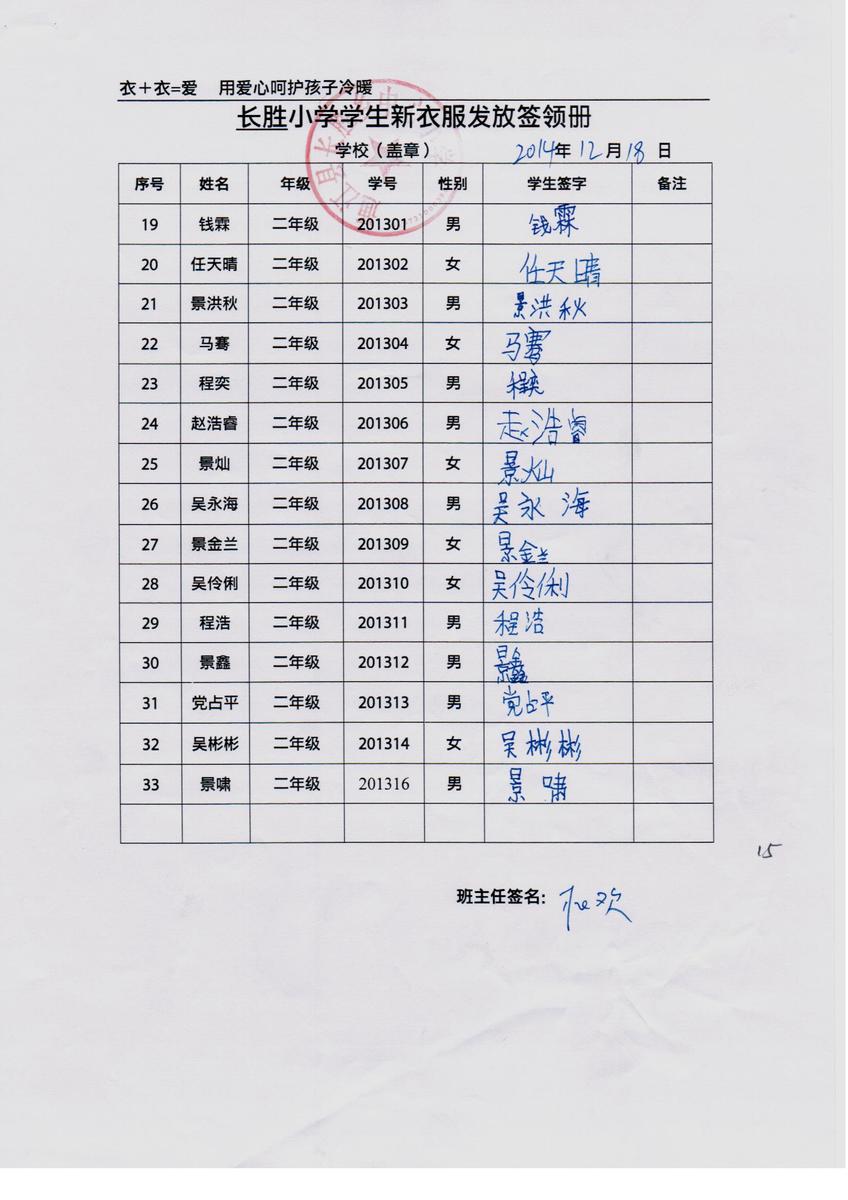 衣＋衣=爱 用爱心呵护孩子冷暖
长胜小学学生新衣服发放签领册
学校（盖章） 2014年 12月 18日
序号 姓名 年级 学号 性别 学生签字 备注
19 钱霖 二年级 201301 男 钱霖
20 任天晴 二年级 201302 女 任天晴
21 景洪秋 二年级 201303 男 景洪秋
22 马骞 二年级 201304 女 马骞
23 程奕 二年级 201305 男 程奕
24 赵浩睿 二年级 201306 男 赵浩睿
25 景灿 二年级 201307 女 景灿
26 吴永海 二年级 201308 男 吴永海
27 景金兰 二年级 201309 女 景金兰
28 吴伶俐 二年级 201310 女 吴伶俐
29 程浩 二年级 201311 男 程浩
30 景鑫 二年级 201312 男 景鑫
31 党占平 二年级 201313 男 党占平
32 吴彬彬 二年级 201314 女 吴彬彬
33 景啸 二年级 201316 男 景啸
15
班主任签名: